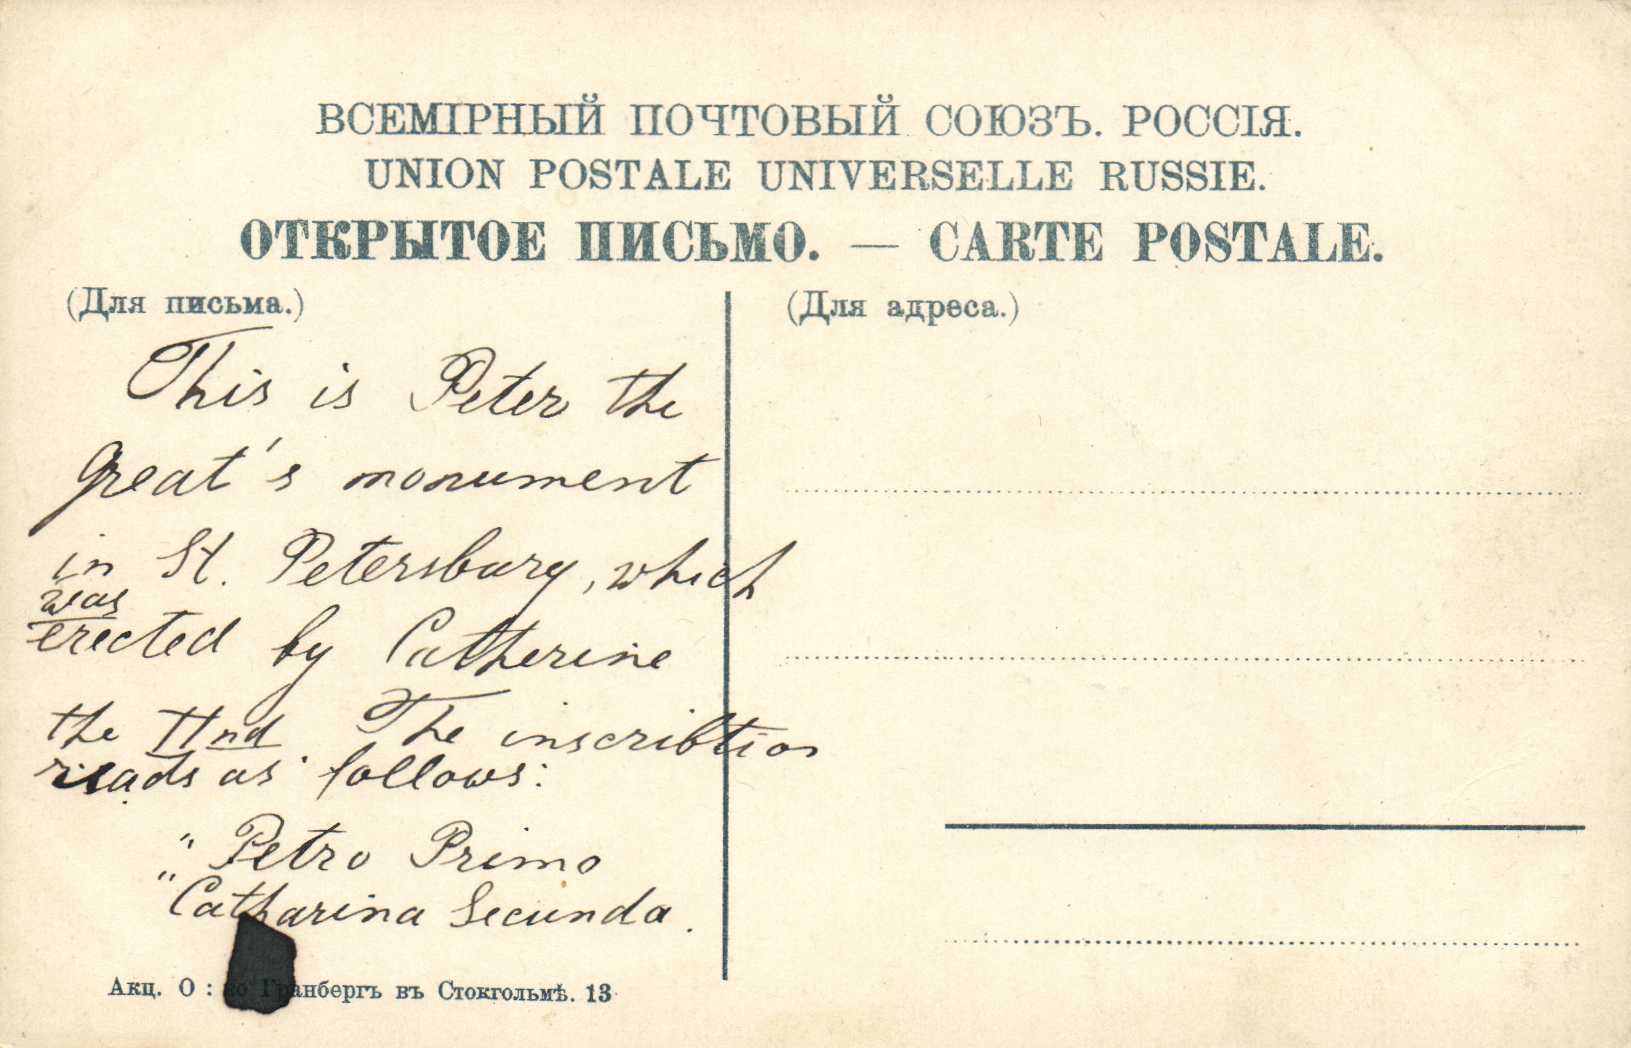 ВСЕМІРНЫЙ ПОЧТОВЫЙ СОЮЗЪ. РОССІЯ.
UNION POSTALE UNIVERSELLE RUSSIE.
ОТКРЫТОЕ ПИСЬМО. — CARTE POSTALE.
(Для письма.)
(Для адреса.)
This is Peter the
Great's monument
in St. Petersburg, which
was
erected by Catherine
the IInd. The inscribtion
reads as follows:
"Petro Primo
"Catharina Secunda.
Акц. О : во Гранбергъ въ Стокгольмѣ. 13